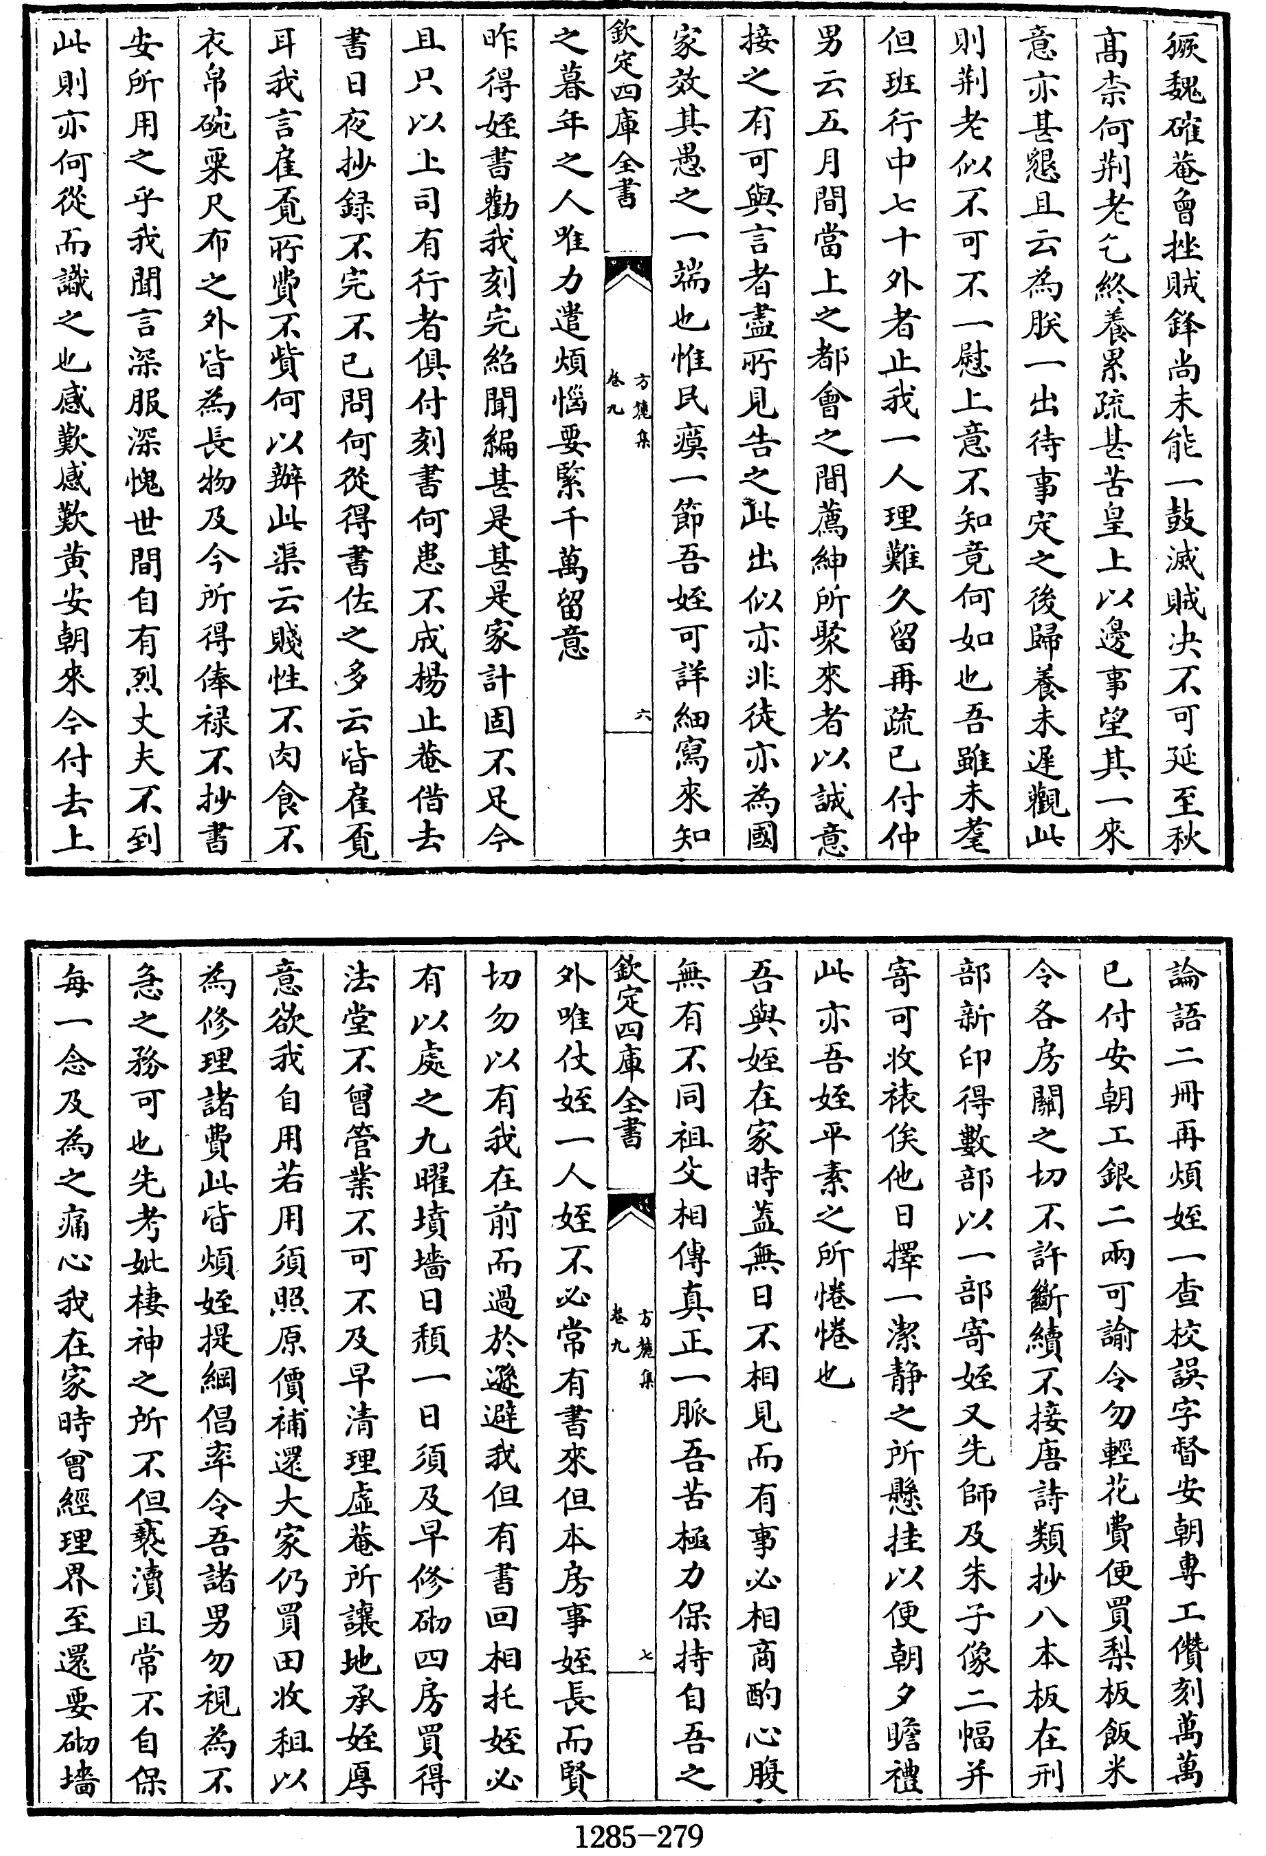 猴魏確菴會挫賊鋒尚未能一鼓滅賊决不可延至秋
髙柰何荆老乞終養累疏甚苦皇上以邊事望其一來
意亦甚懇且云為朕一出待事定之後歸養未遲觀此
則荆老似不可不一慰上意不知竟何如也吾雖未耄
但班行中七十外者止我一人理難久留再疏已付仲
男云五月間當上之都會之間薦紳所聚來者以誠意
接之有可與言者盡所見告之此出似亦非徒亦為國
家效其愚之一端也惟民瘼一節吾姪可詳細寫來知
欽定四庫全書
方麓集
卷九
六
之暮年之人唯力遣煩惱要緊千萬留意
昨得姪書勸我刻完紹聞編甚是甚是家計固不足今
且只以上司有行者俱付刻書何患不成楊止菴借去
書日夜抄録不完不已問何從得書佐之多云皆雇覔
耳我言雇覔所費不貲何以辦此渠云賤性不肉食不
衣帛碗粟尺布之外皆為長物及今所得俸禄不抄書
安所用之乎我聞言深服深愧世間自有烈丈夫不到
此則亦何從而識之也感歎感歎黄安朝來今付去上
論語二冊再煩姪一查校誤字督安朝專工儹刻萬萬
已付安朝工銀二兩可諭令勿輕花費便買梨板飯米
令各房關之切不許斷續不接唐詩類抄八本板在刑
部新印得數部以一部寄姪又先師及朱子像二幅并
寄可收裱俟他日擇一潔静之所懸挂以便朝夕瞻禮
此亦吾姪平素之所惓惓也
吾與姪在家時葢無日不相見而有事必相商酌心腹
無有不同祖父相傳真正一脈吾苦極力保持自吾之
欽定四庫全書
方麓集
卷九
七
外唯仗姪一人姪不必常有書來但本房事姪長而賢
切勿以有我在前而過於遜避我但有書回相托姪必
有以處之九曜墳墻日頽一日須及早修砌四房買得
法堂不曾管業不可不及早清理虛菴所讓地承姪厚
意欲我自用若用須照原價補還大家仍買田收租以
為修理諸費此皆煩姪提綱倡率令吾諸男勿視為不
急之務可也先考妣棲神之所不但褻瀆且常不自保
每一念及為之痛心我在家時曾經理界至還要砌墻
1285-279